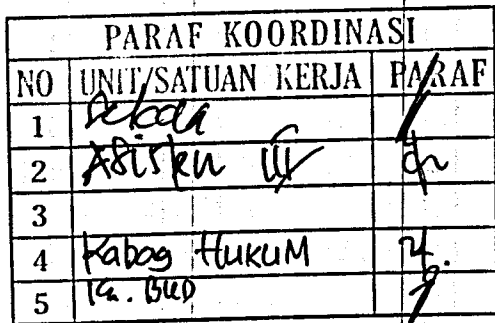 PARAF KOORDINASI
NO UNIT/SATUAN KERJA PARAF
1 Sekda
2 Asisten III
3
4 Kabag HUKUM
5 Ka. BUD